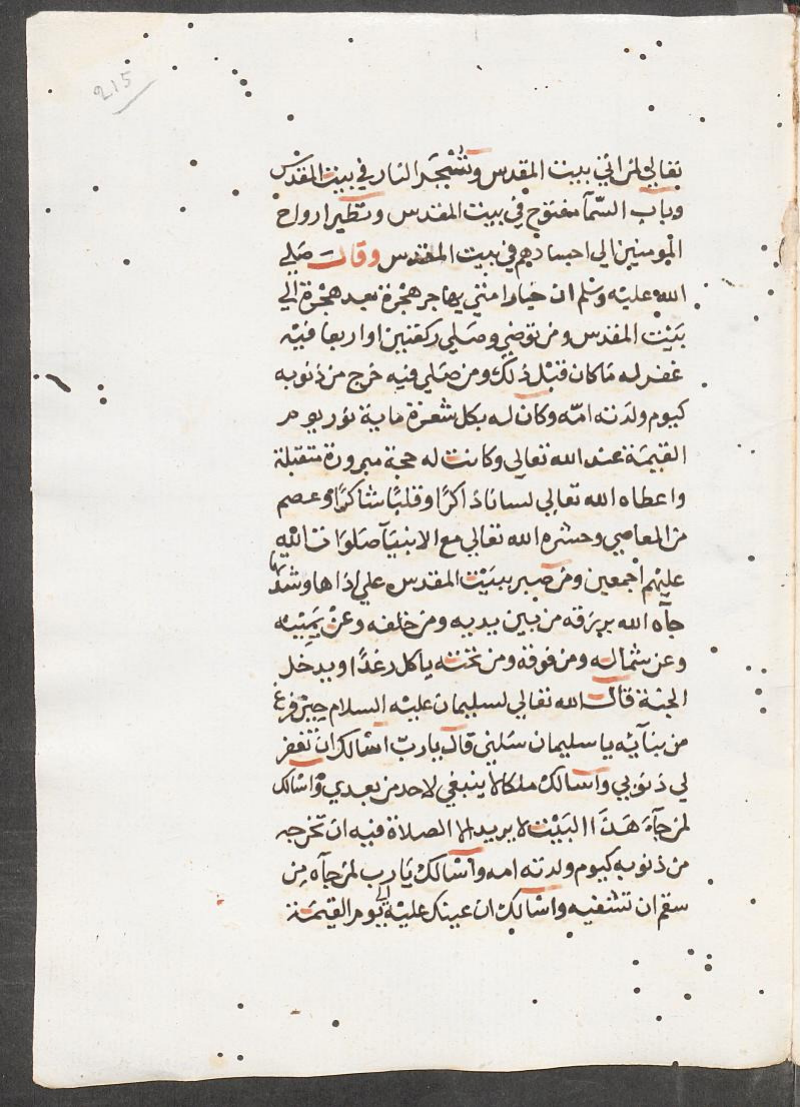 215
تعالي لمن اتي ببيت المقدس وتُسْجَر النار في بيت المقدس
وباب السمآ مفتوح في بيت المقدس وتطير ارواح
المومنين الي اجسادهم في بيت المقدس وقال صلي
الله عليه وسلم ان خيار امتي يهاجر هجرة بعد هجرة الي
بيت المقدس ومن توضي وصلي ركعتين او اربعا فيه
غفر له ما كان قبل ذلك ومن صلي فيه خرج من ذنوبه
كيوم ولدته امه وكان له بكل شعرة ماية نور يوم
القيمة عند الله تعالي وكانت له حجة مبرورة متقبلة
واعطاه الله تعالي لسانا ذاكرًا وقلبًا شاكرًا وعصم
من المعاصي وحشره الله تعالي مع الانبيآ صلوات الله
عليهم اجمعين ومن صبر ببيت المقدس علي اذاها وشدتها
جآه الله برزقه من بين يديه ومن خلفه وعن يمينه
وعن شماله ومن فوقه ومن تحته ياكل رغدًا ويدخل
الجنة قال الله تعالي لسليمان عليه السلام حين فرغ
من بنآيه يا سليمان سلني قال يا ربّ اسالك ان تغفر
لي ذنوبي واسالك ملكا لا ينبغي لاحد من بعدي واسالك
لمن جآء هذا البيت لا يريد الا الصلاة فيه ان تخرجه
من ذنوبه كيوم ولدته امه واسالك يا رب لمن جآه من
سقم ان تشفيه واسالك ان عينك عليه الي يوم القيمة